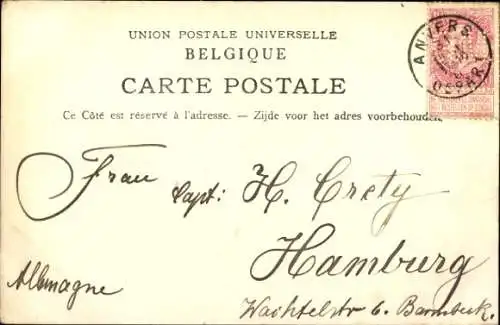 UNION POSTALE UNIVERSELLE
BELGIQUE
CARTE POSTALE
Ce Côté est réservé à l'adresse. — Zijde voor het adres voorbehouden.
ANVERS
DEPART
Frau
Capt: H. Crety
Hamburg
Allemagne
Wachtelstr 6. Barmbeck.